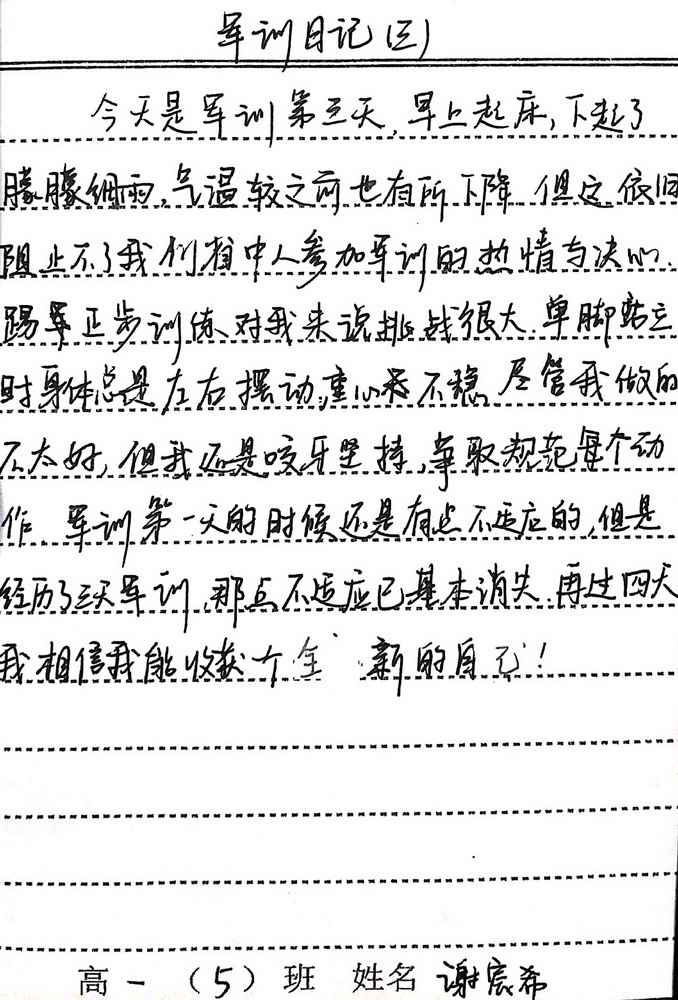 军训日记(三)
今天是军训第三天,早上起床,下起了
朦朦细雨,气温较之前也有所下降,但这依旧
阻止不了我们省中人参加军训的热情与决心.
踢军正步训练对我来说挑战很大,单脚站立
时身体总是左右摆动,重心不稳,尽管我做的
不太好,但我还是咬牙坚持,争取规范每个动
作.军训第一天的时候还是有点不适应的,但是
经历了三天军训,那点不适应已基本消失,再过四天
我相信我能收获个全新的自己!
高一(5)班 姓名 谢宸希